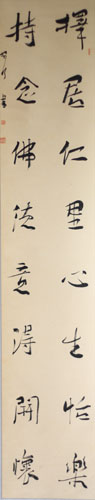 擇居仁里心生怡樂
持念佛法意得開懷